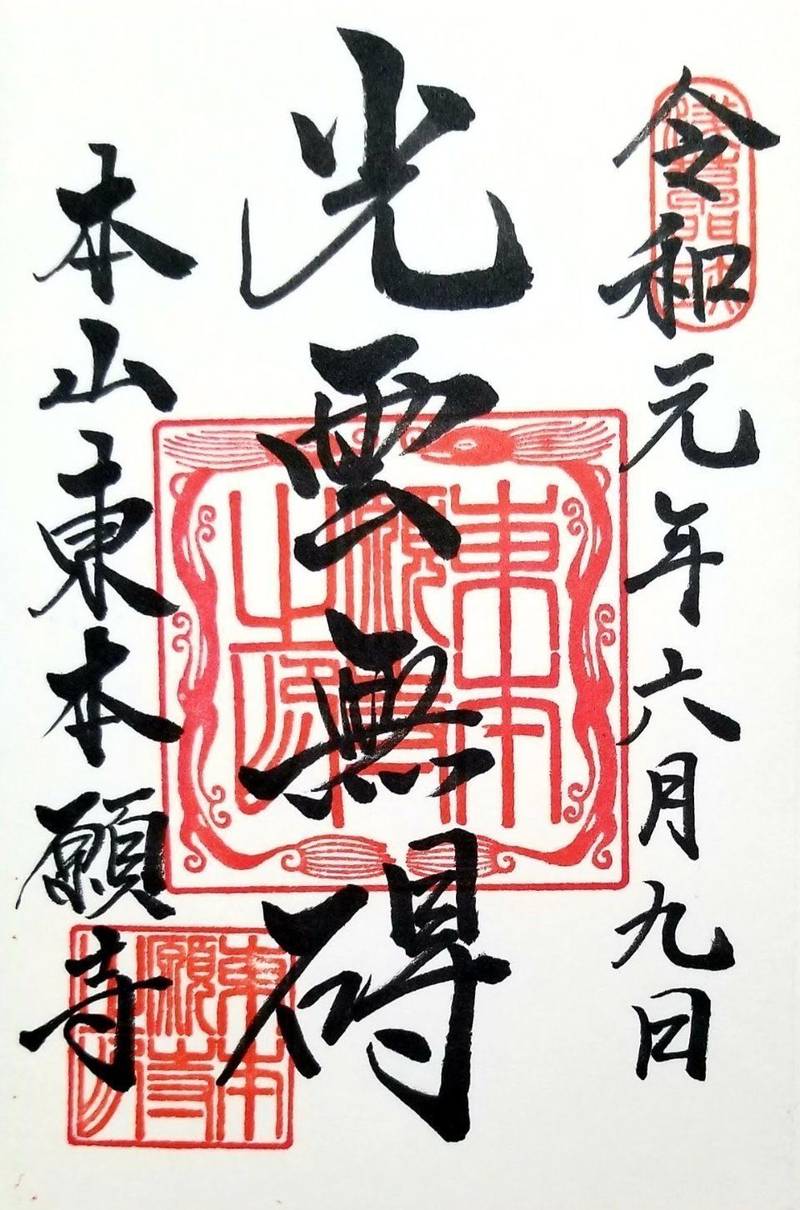 令和元年六月九日
光雲無碍
本山東本願寺
東本願寺之印
東本願寺